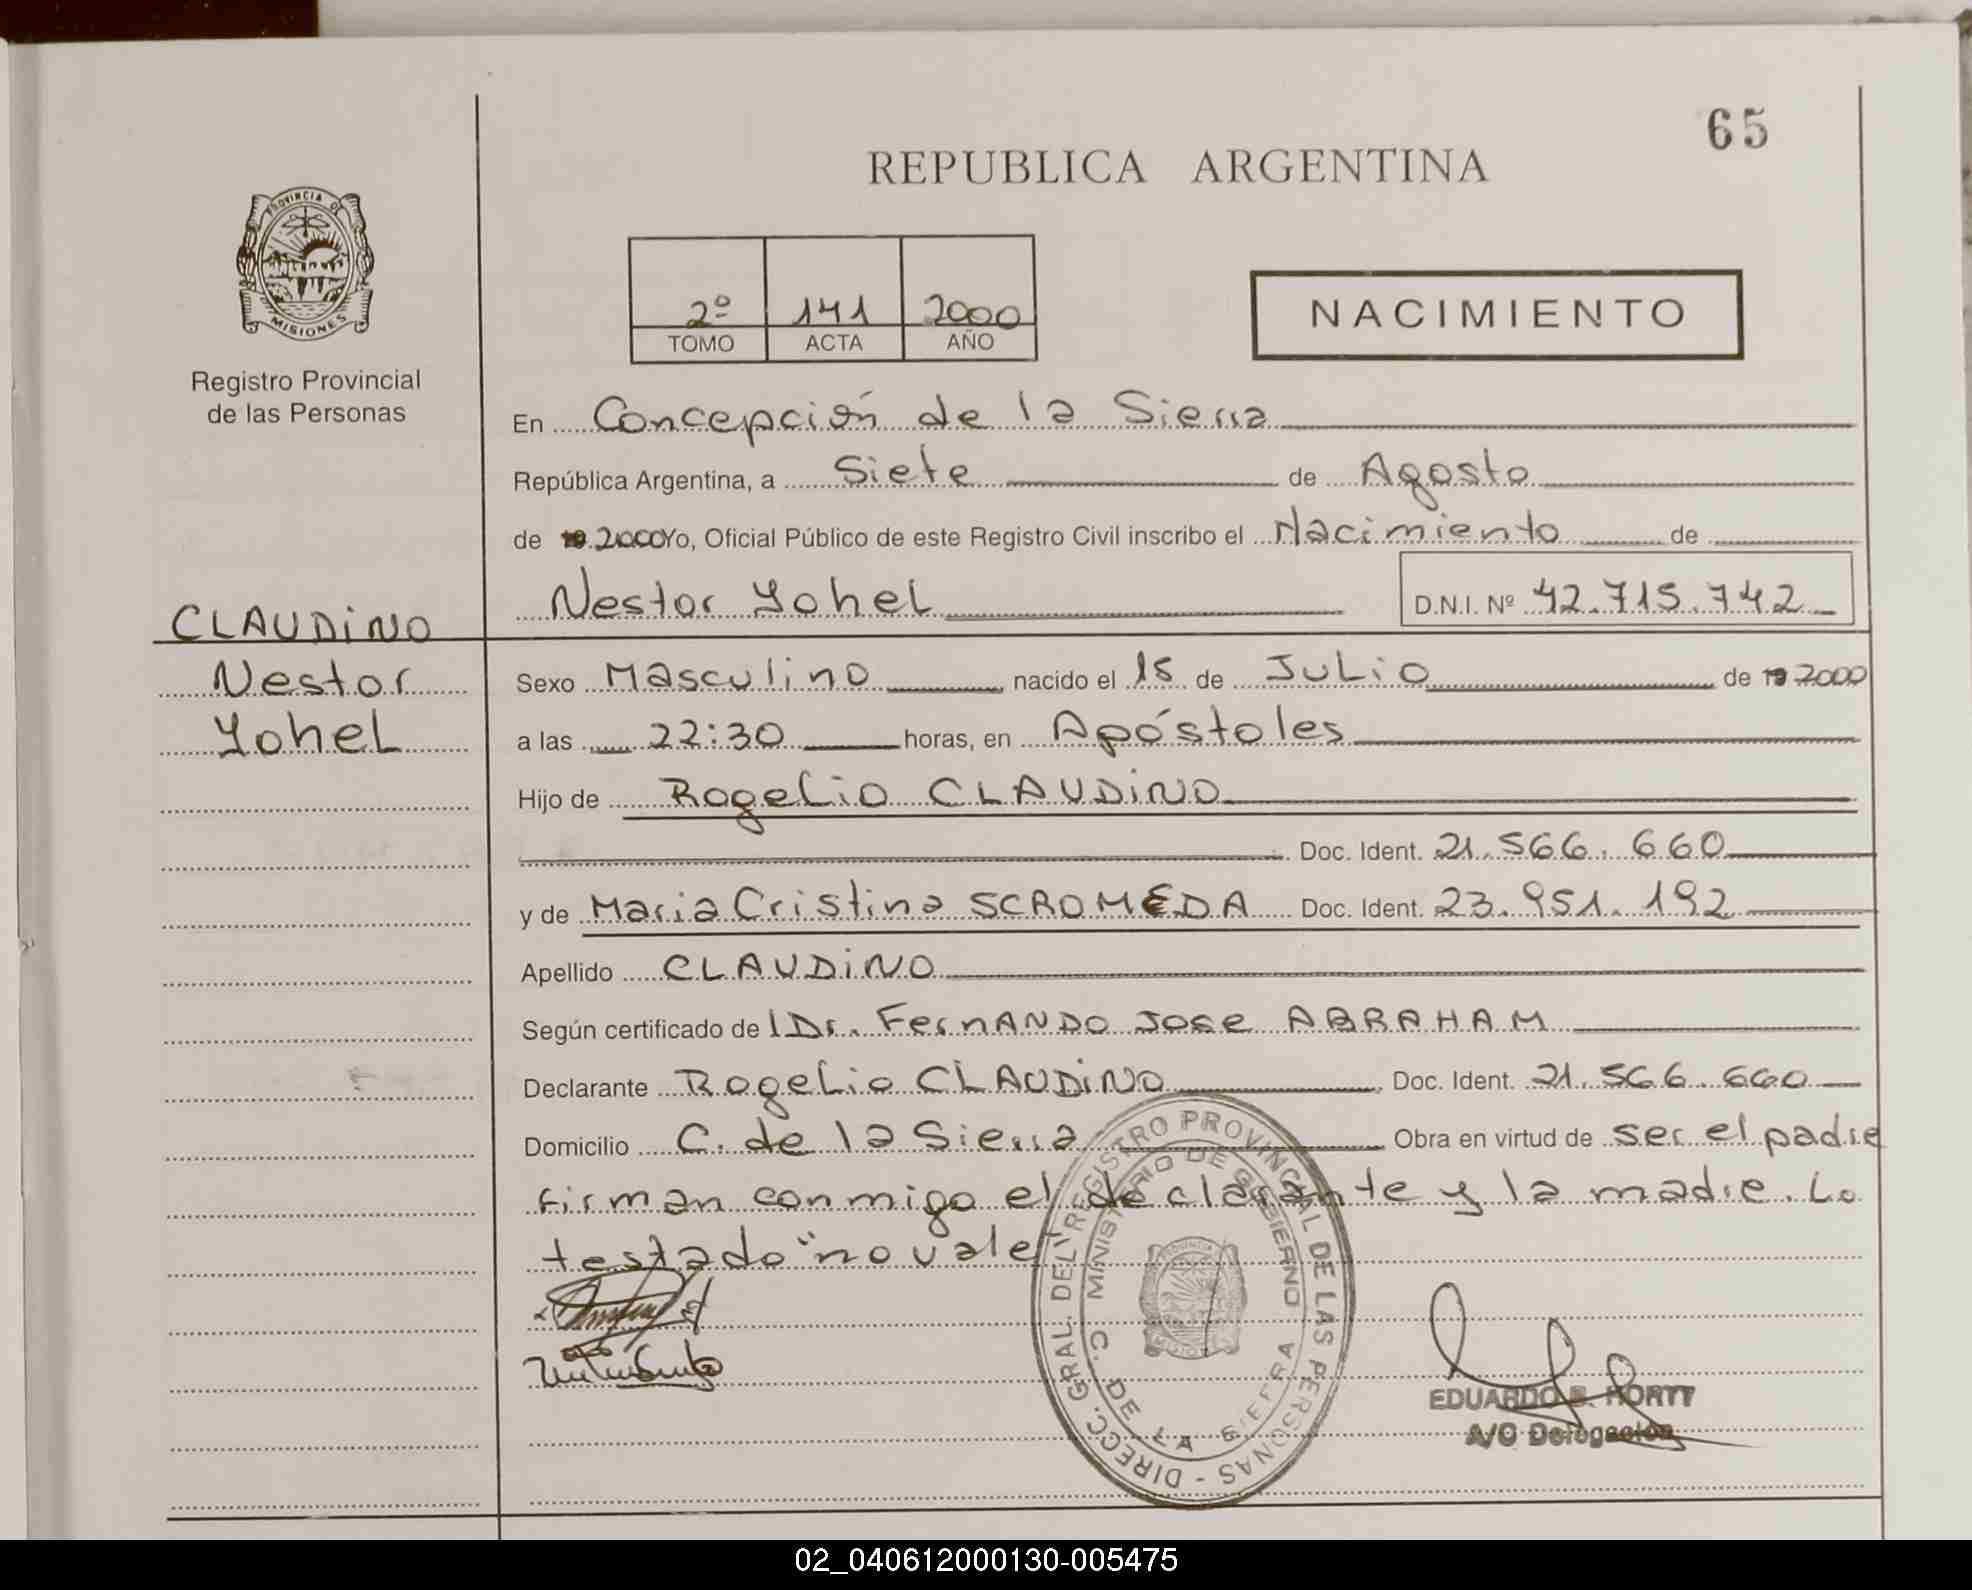 65
REPUBLICA ARGENTINA
PROVINCIA DE
MISIONES
Registro Provincial
de las Personas
2º 141 2000
TOMO ACTA AÑO
NACIMIENTO
En Concepción de la Sierra
República Argentina, a Siete de Agosto
de 19 2000 Yo, Oficial Público de este Registro Civil inscribo el Nacimiento de
Nestor Yohel D.N.I. Nº 42.715.742
CLAUDINO
Nestor
Yohel
Sexo Masculino nacido el 15 de Julio de 19 2000
a las 22:30 horas, en Apóstoles
Hijo de Rogelio CLAUDINO
Doc. Ident. 21.566.660
y de Maria Cristina SCROMEDA Doc. Ident. 23.951.192
Apellido CLAUDINO
Según certificado de l Dr. FernANDO Jose ABRAHAM
Declarante Rogelio CLAUDINO Doc. Ident. 21.566.660
Domicilio C. de la Sierra Obra en virtud de ser el padre
firman conmigo el declarante y la madre. Lo
testado "no vale"
DIRECC. GRAL. DEL REGISTRO PROVINCIAL DE LAS PERSONAS -
MINISTERIO DE GOBIERNO
C. DE LA SIERRA
EDUARDO
A/C Delegación
02_040612000130-005475